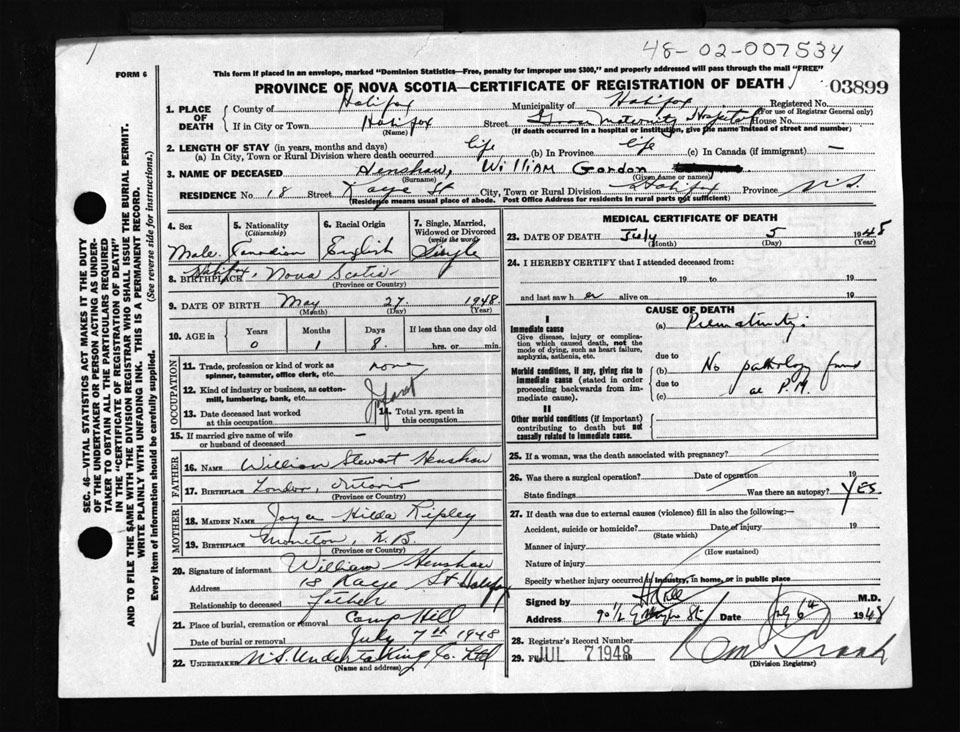 48-02-007534
FORM 6
This form if placed in an envelope, marked "Dominion Statistics—Free, penalty for improper use $300," and properly addressed will pass through the mail "FREE"
PROVINCE OF NOVA SCOTIA—CERTIFICATE OF REGISTRATION OF DEATH
03899
1. PLACE OF DEATH
County of Halifax Municipality of Halifax Registered No.
(For use of Registrar General only)
If in City or Town Halifax Street Grace Maternity Hospital House No.
(Name) (If death occurred in a hospital or institution, give the name instead of street and number)
2. LENGTH OF STAY (in years, months and days)
(a) In City, Town or Rural Division where death occurred life (b) In Province life (c) In Canada (if immigrant) —
3. NAME OF DECEASED Henshaw, William Gordon
(Surname) (Given name or names)
RESIDENCE No. 18 Street Kaye St City, Town or Rural Division Halifax Province N.S.
(Residence means usual place of abode. Post Office Address for residents in rural parts not sufficient)
SEC. 46—VITAL STATISTICS ACT MAKES IT THE DUTY
OF THE UNDERTAKER OR PERSON ACTING AS UNDER-
TAKER TO OBTAIN ALL THE PARTICULARS REQUIRED
IN THE "CERTIFICATE OF REGISTRATION OF DEATH"
AND TO FILE THE SAME WITH THE DIVISION REGISTRAR WHO SHALL ISSUE THE BURIAL PERMIT.
WRITE PLAINLY WITH UNFADING INK. THIS IS A PERMANENT RECORD.
Every item of information should be carefully supplied. (See reverse side for instructions.)
4. Sex Male
5. Nationality (Citizenship) Canadian
6. Racial Origin English
7. Single, Married, Widowed or Divorced (write the word) Single
8. BIRTHPLACE Halifax, Nova Scotia
(Province or Country)
9. DATE OF BIRTH May 27 1948
(Month) (Day) (Year)
10. AGE in Years Months Days If less than one day old
0 1 8 hrs. or min.
OCCUPATION
11. Trade, profession or kind of work as spinner, teamster, office clerk, etc. none
12. Kind of industry or business, as cotton-mill, lumbering, bank, etc. Infant
13. Date deceased last worked at this occupation
14. Total yrs. spent in this occupation
15. If married give name of wife or husband of deceased —
FATHER
16. NAME William Stewart Henshaw
17. BIRTHPLACE London, Ontario
(Province or Country)
MOTHER
18. MAIDEN NAME Joyce Hilda Ripley
19. BIRTHPLACE Moncton, N.B.
(Province or Country)
20. Signature of informant William Henshaw
Address 18 Kaye St Halifax
Relationship to deceased Father
21. Place of burial, cremation or removal Camp Hill
Date of burial or removal July 7th 1948
22. UNDERTAKER N.S. Undertaking Co. Ltd
(Name and address)
MEDICAL CERTIFICATE OF DEATH
23. DATE OF DEATH July 5 1948
(Month) (Day) (Year)
24. I HEREBY CERTIFY that I attended deceased from:
19 to 19
and last saw h er alive on 19
CAUSE OF DEATH
I
Immediate cause
Give disease, injury or complication which caused death, not the mode of dying, such as heart failure, asphyxia, asthenia, etc.
(a) Prematurity:
due to
Morbid conditions, if any, giving rise to immediate cause (stated in order proceeding backwards from immediate cause).
(b) No pathology found
due to at P.M.
(c)
II
Other morbid conditions (if important) contributing to death but not causally related to immediate cause.
25. If a woman, was the death associated with pregnancy?
26. Was there a surgical operation? Date of operation 19
State findings Was there an autopsy? YES.
27. If death was due to external causes (violence) fill in also the following:—
Accident, suicide or homicide? Date of injury 19
(State which)
Manner of injury
(How sustained)
Nature of injury
Specify whether injury occurred in industry, in home, or in public place
Signed by M.D.
Address Date July 6th 1948
28. Registrar's Record Number
29. Filed JUL 7 1948
(Division Registrar)